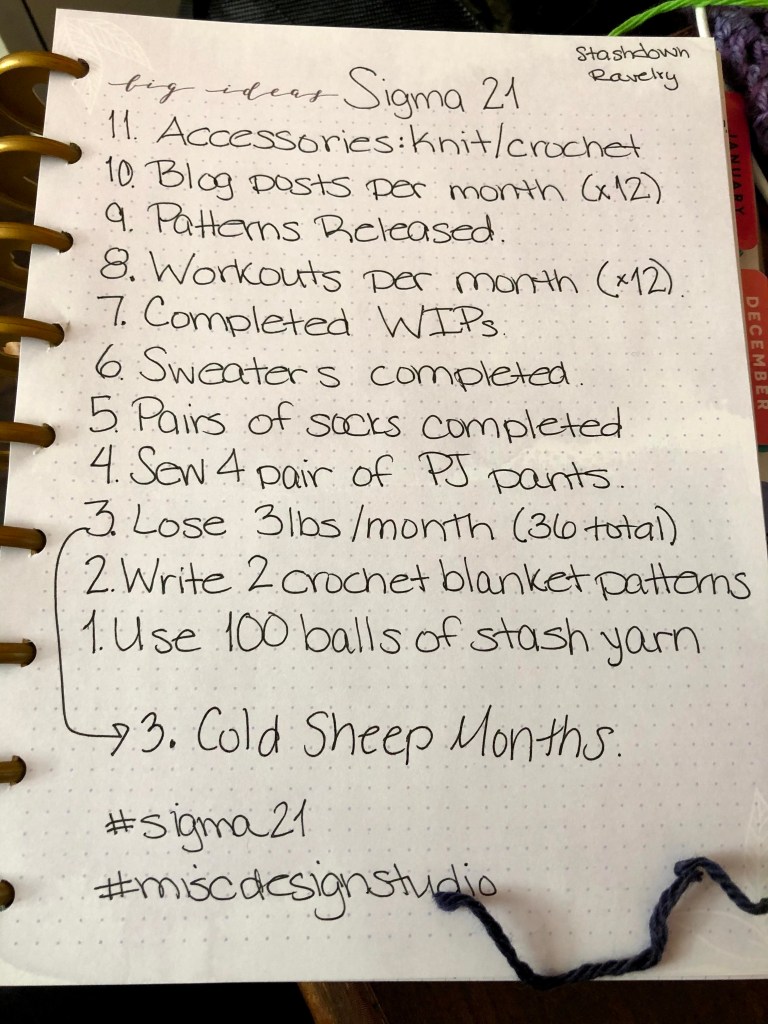 Stashdown
Ravelry
big ideas Sigma 21
11. Accessories: Knit/crochet
10. Blog posts per month (x12)
9. Patterns Released.
8. Workouts per month (x12).
7. Completed WIPs.
6. Sweaters completed.
5. Pairs of socks completed
4. Sew 4 pair of PJ pants.
3. Lose 3lbs/month (36 total)
2. Write 2 crochet blanket patterns
1. Use 100 balls of stash yarn
3. Cold Sheep Months.
#sigma21
#miscdesignstudio
JANUARY
DECEMBER